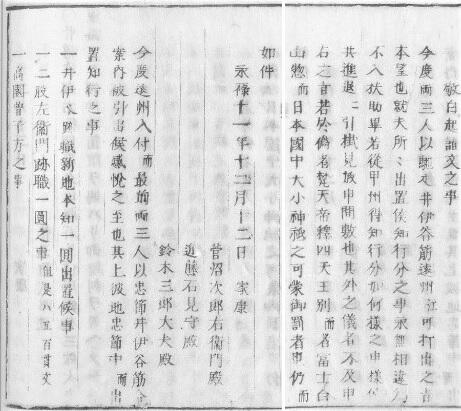 敬白起請文之事
今度両三人以馳走井伊谷筋遠州江可打出之吉
本望也就夫所々出置候知行分之事永無相違為
不入扶助畢若従甲州得知行分如何様之申様候
共進退ニ引掛見放申間敷也其外之儀者不及申
右之旨若於偽者梵天帝釋四天王別而者冨士白
山惣而日本國中大小神祇之可蒙御罰者也仍而
如件
永禄十一年十二月十二日 家康
菅沼次郎右衛門殿
近藤石見守殿
鈴木三郎大夫殿
今度遠州入付而最前両三人以忠節井伊谷筋令
案内被引出候感悦之至也其上彼地忠節中而出
置知行之事
一井伊谷跡職新地本知一圓出置候事
一二股左衛門跡職一圓之事但是八五百貫文
一高園曽子方之事